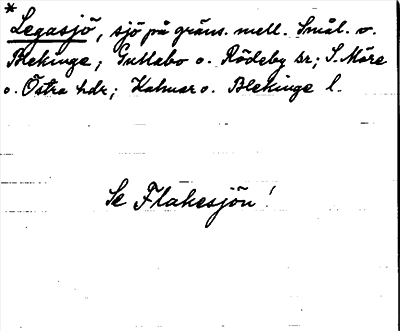 * Legasjö, sjö på gräns. mell. Smål. o.
Blekinge; Gullabo o. Rödeby sr; S. Möre
o. Östra hdr; Kalmar o. Blekinge l.
Se Flakesjön!